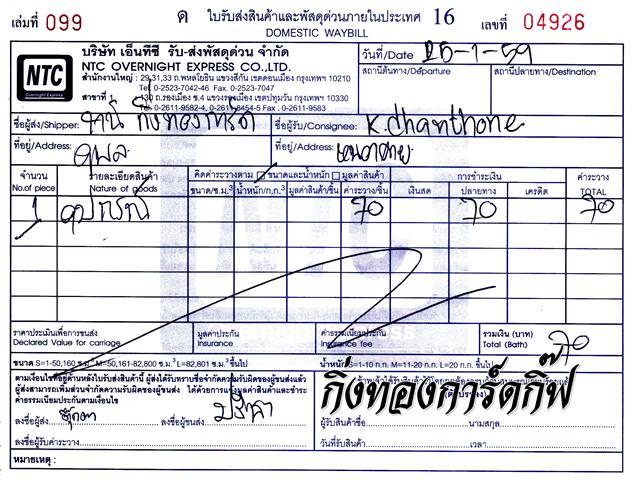 เล่มที่ 099 ค ใบรับส่งสินค้าและพัสดุด่วนภายในประเทศ 16 เลขที่ 04926
DOMESTIC WAYBILL
NTC
Overnight Express
บริษัท เอ็นทีซี รับ-ส่งพัสดุด่วน จำกัด
NTC OVERNIGHT EXPRESS CO.,LTD.
สำนักงานใหญ่ : 29,31,33 ถ.พหลโยธิน แขวงสีกัน เขตดอนเมือง กรุงเทพฯ 10210
Tel. 0-2523-7042-46 Fax. 0-2523-7047
สาขาที่ 1 130 ถ.รองเมือง ซ.4 แขวงรองเมือง เขตปทุมวัน กรุงเทพฯ 10330
Tel. 0-2611-9582-4, 0-2611-8454-5 Fax. 0-2611-9583
วันที่/Date 25-1-59
สถานีต้นทาง/Departure สถานีปลายทาง/Destination
ชื่อผู้ส่ง/Shipper: ร้าน กิ่งทองการ์ด ชื่อผู้รับ/Consignee: K. chanthone
ที่อยู่/Address: อุบล ที่อยู่/Address: หนองคาย
จำนวน รายละเอียดสินค้า คิดค่าระวางตาม ขนาดและน้ำหนัก มูลค่าสินค้า การชำระเงิน ค่าระวาง
No.of piece Nature of goods ขนาด/ซ.ม.³ น้ำหนัก/ก.ก.³ มูลค่าสินค้า/ชิ้น ค่าระวาง/ชิ้น เงินสด ปลายทาง เครดิต TOTAL
1 อุปกรณ์ 70 70 70
ราคาประเมินเพื่อการขนส่ง มูลค่าประกัน ค่าธรรมเนียมประกัน รวมเงิน (บาท)
Declared Value for carriage Insurance Insurance fee Total (Bath) 70
ขนาด S=1-50,160 ซ.ม.³ M=50,161-82,800 ซม.³ L=82,801 ซ.³ ขึ้นไป น้ำหนัก S=1-10 ก.ก. M=11-20 ก.ก. L=20 ก.ก. ขึ้นไป
ตามเงื่อนไขที่อยู่ด้านหลังใบรับส่งสินค้านี้ ผู้ส่งได้รับทราบข้อจำกัดความรับผิดของผู้ขนส่งแล้ว
ผู้ส่งสามารถเพิ่มส่วนจำกัดความรับผิดของผู้ขนส่ง ได้ด้วยการแจ้งมูลค่าสินค้าและชำระ
ค่าธรรมเนียมประกันตามเงื่อนไข
กิ่งทองการ์ดกิ๊ฟ
ลงชื่อผู้ส่ง ลงชื่อผู้ขนส่ง ผู้รับสินค้าชื่อ นามสกุล
ลงชื่อผู้รับค่าระวาง วันที่รับสินค้า เวลา
หมายเหตุ :